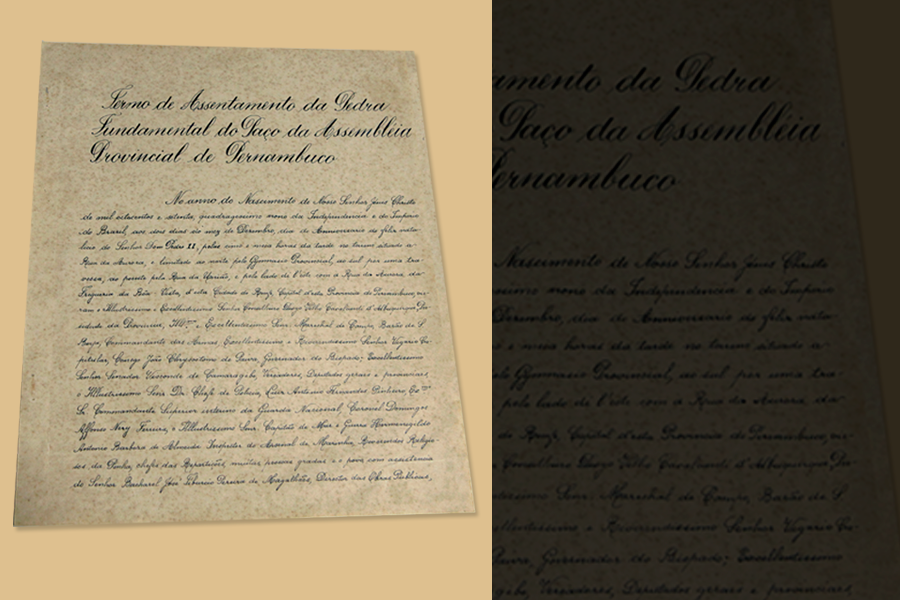 Termo de Assentamento da Pedra
Fundamental do Paço da Assembléia
Provincial de Pernambuco
No anno do Nascimento de Nosso Senhor Jesus Christo
de mil oitocentos e setenta, quadragesimo nono da Independencia e do Imperio
do Brazil, aos dois dias do mez de Dezembro, dia do Anniversario do feliz nata-
licio do Senhor Dom Pedro II, pelas cinco e meia horas da tarde no terreno situado á
Rua da Aurora, e limitado ao norte pelo Gymnasio Provincial, ao sul por uma tra-
vessa, ao poente pela Rua da União, e pelo lado de l'éste com a Rua da Aurora, da
Freguezia da Bôa-Vista, d'esta Cidade do Recife, Capital d'esta Provincia de Pernambuco,
e Excellentissimo Senhor Conselheiro Diogo Velho Cavalcanti d'Albuquerque, Pre-
sidente da Provincia, Illmo e Excellentissimo Snr. Marechal de Campo, Barão de S.
Borja, Commandante das Armas Excellentissimo e Reverendissimo Senhor Vigario Ca-
pitular, Conego João Chrysostomo de Paiva, Governador do Bispado; Excellentissimo
Senhor Senador Visconde de Camaragibe, Vereadores, Deputados geraes e provinciaes,
o Illustrissimo Snr. Dr. Chefe de Policia, Luiz Antonio Fernandes Pinheiro,
Commandante Superior interino da Guarda Nacional, Coronel Domingos
Affonso Nery Ferreira, e Illustrissimo Snr. Capitão de Mar e Guerra Hermenegildo
Antonio Barbosa de Almeida Inspector do Arsenal de Marinha, Reverendos Religio-
sos da Penha, chefes das Repartições, muitas pessoas gradas e o povo com assistencia
do Senhor Bacharel José Tiburcio Pereira de Magalhães, Director das Obras Publicas,
amento da Pedra
Paço da Assembléia
Pernambuco
Nascimento de Nosso Senhor Jesus Christo
nono da Independencia e do Imperio
Dezembro, dia do Anniversario do feliz nata-
e meia horas da tarde no terreno situado á
pelo Gymnasio Provincial, ao sul por uma tra-
pelo lado de l'éste com a Rua da Aurora, da
do Recife, Capital d'esta Provincia de Pernambuco,
Conselheiro Diogo Velho Cavalcanti d'Albuquerque, Pre-
Snr. Marechal de Campo, Barão de S.
e Reverendissimo Senhor Vigario Ca-
Paiva, Governador do Bispado; Excellentissimo
Vereadores, Deputados geraes e provinciaes,